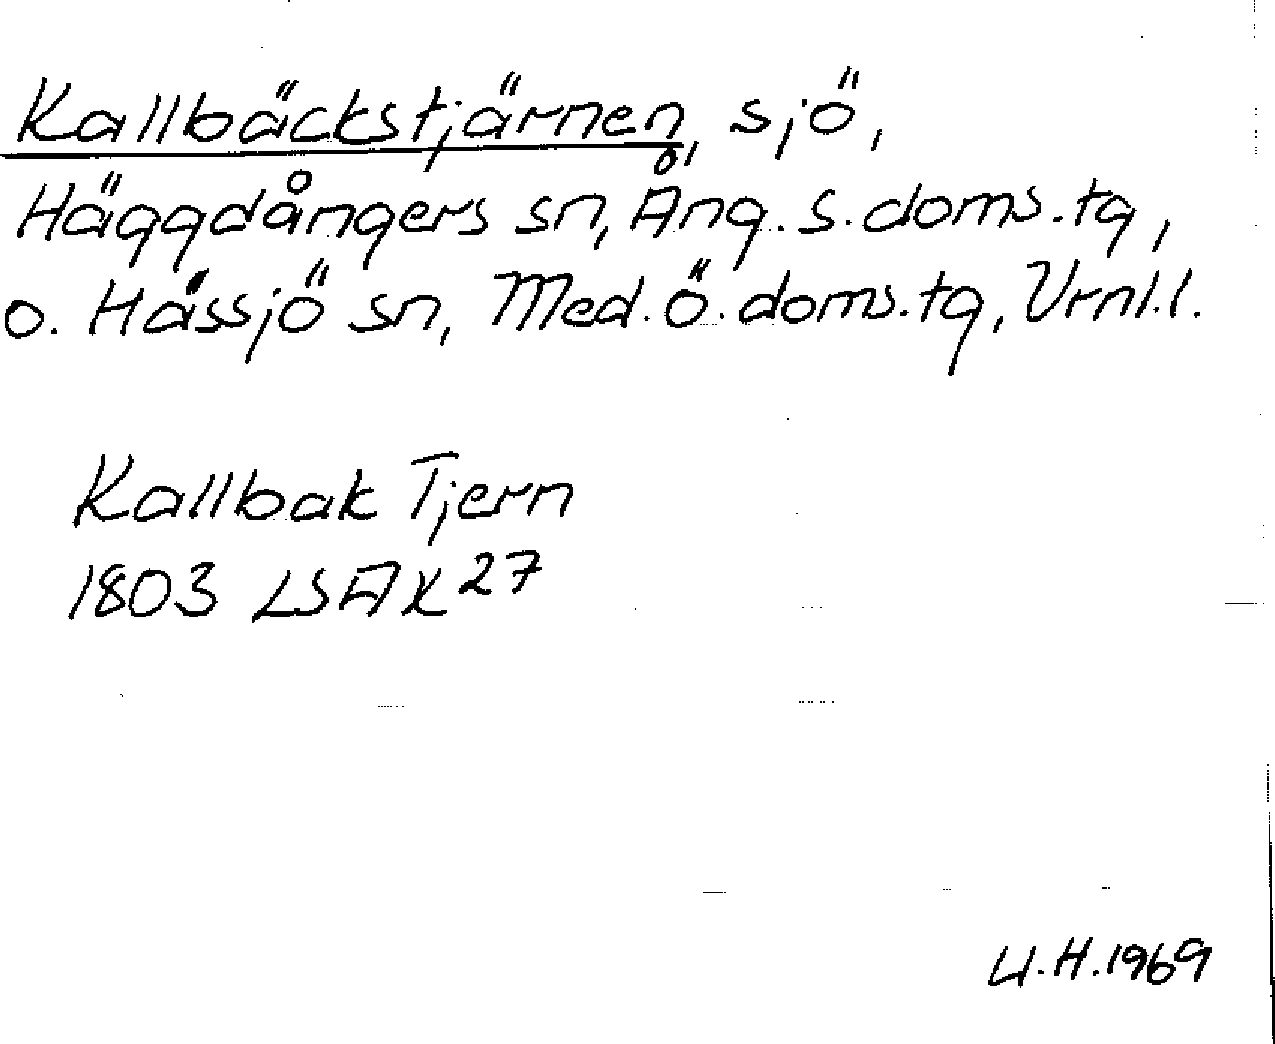 Kallbäckstjärnen, sjö,
Häggdångers sn, Ång. s. doms.tg,
o. Hässjö sn, Med. ö. doms.tg, Vrnl.l.
Kallbak Tjern
1803 LSA K 27
U.H. 1969